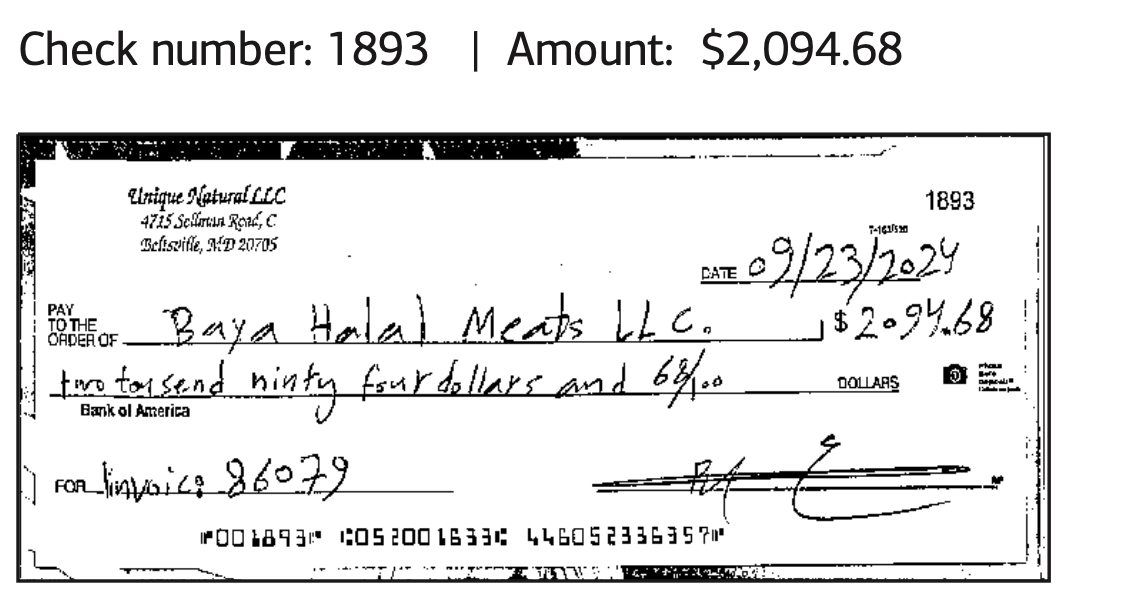 Check number: 1893 | Amount: $2,094.68
Unique Natural LLC
4715 Sellman Road, C
Beltsville, MD 20705
1893
DATE 09/23/2024
PAY
TO THE
ORDER OF Baya Halal Meats LLC. $ 2094.68
two tousend ninty four dollars and 68/100 DOLLARS
Bank of America
FOR invoice 86079
⑈001893⑈ ⑆052001633⑆ 446052336357⑈